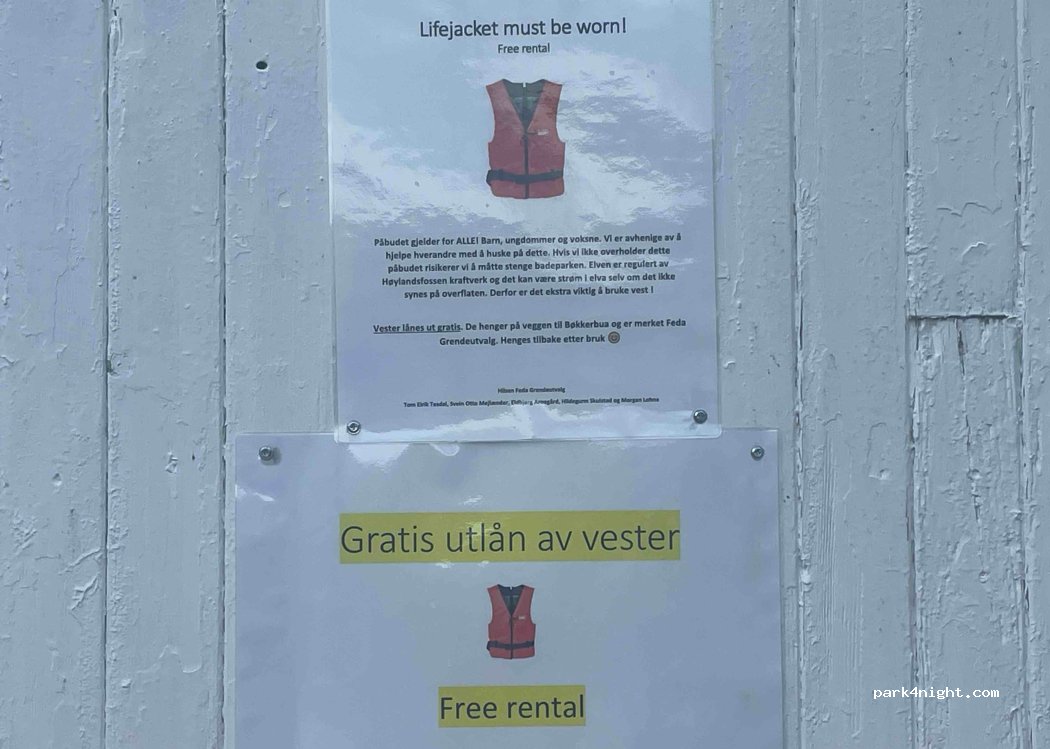 Lifejacket must be worn!
Free rental
Påbudet gjelder for ALLE! Barn, ungdommer og voksne. Vi er avhenige av å
hjelpe hverandre med å huske på dette. Hvis vi ikke overholder dette
påbudet risikerer vi å måtte stenge badeparken. Elven er regulert av
Høylandsfossen kraftverk og det kan være strøm i elva selv om det ikke
synes på overflaten. Derfor er det ekstra viktig å bruke vest !
Vester lånes ut gratis. De henger på veggen til Bøkkerbua og er merket Feda
Grendeutvalg. Henges tilbake etter bruk
Hilsen Feda Grendeutvalg
Tom Eirik Tesdal, Svein Otto Mejlænder, Eldbjørg Arnegård, Hildegunn Skulstad og Morgan Lohne
Gratis utlån av vester
Free rental
park4night.com